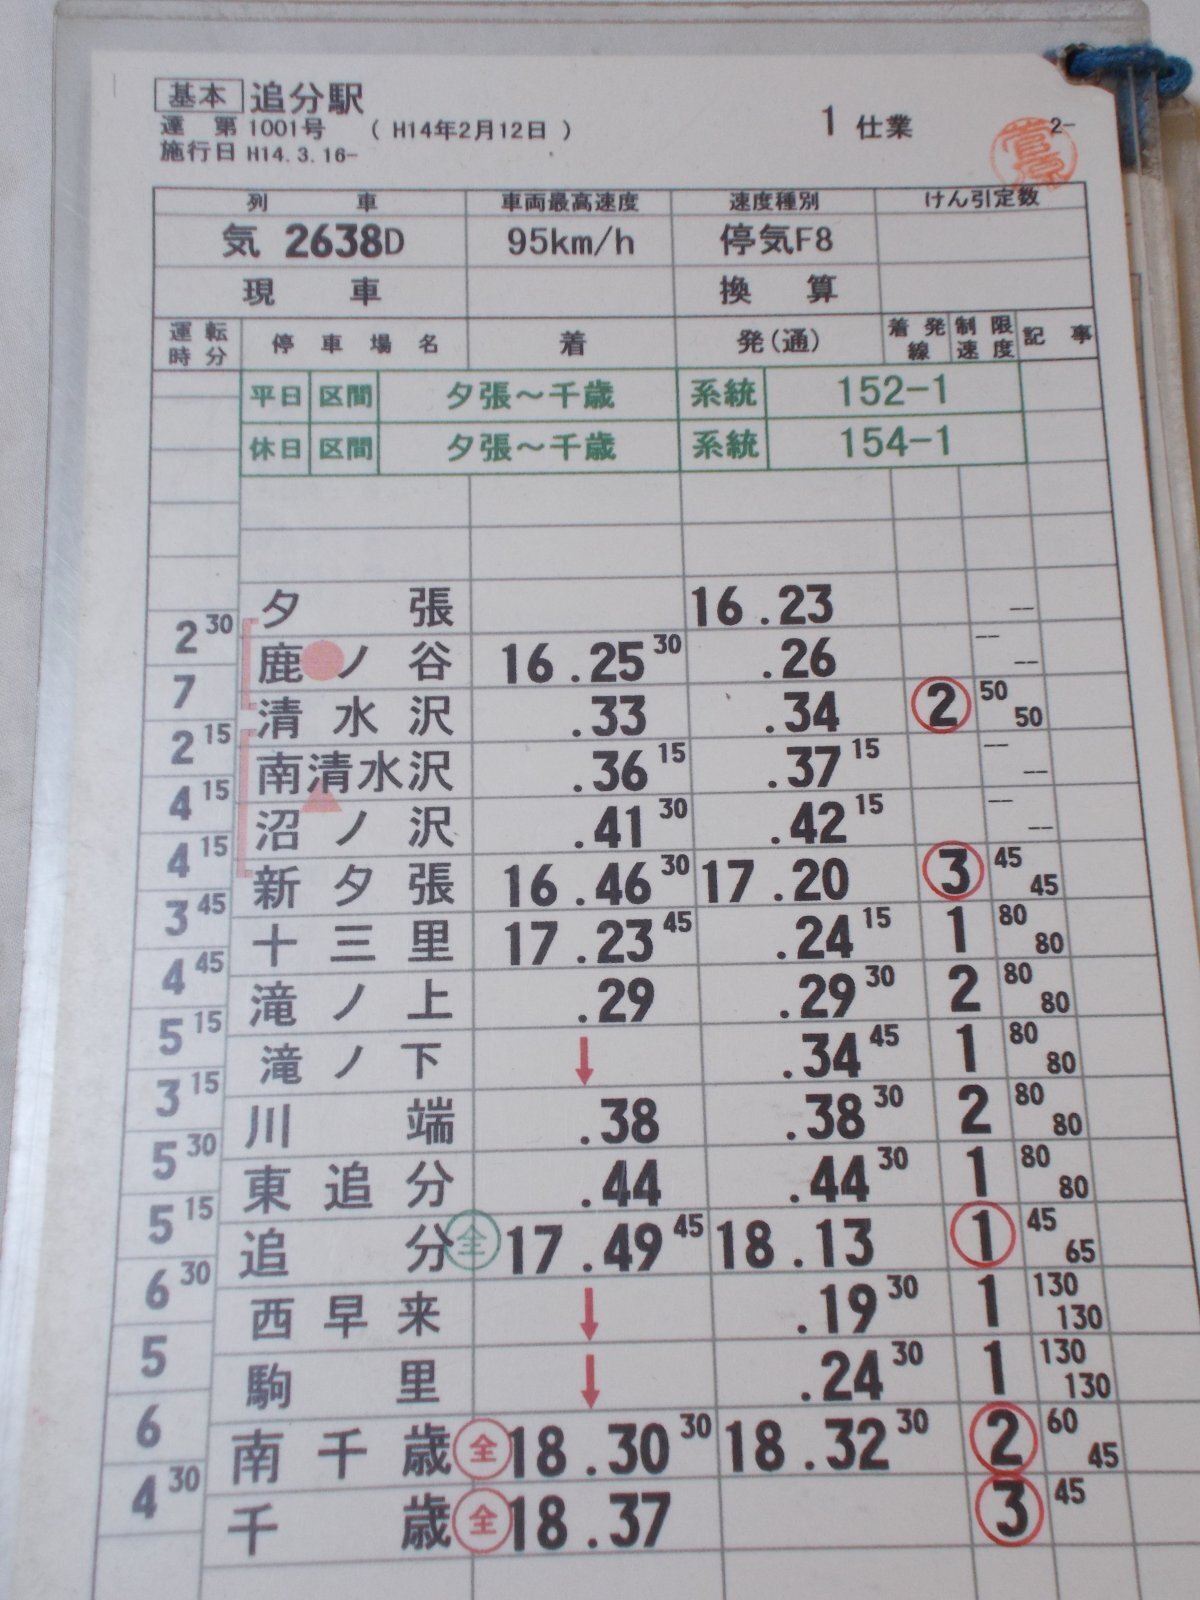 基本 追分駅
運 第 1001号 ( H14年2月12日 ) 1 仕業 2-
施行日 H14.3.16-
列 車 車両最高速度 速度種別 けん引定数
気 2638D 95km/h 停気F8
現 車 換 算
運転時分 停車場名 着 発(通) 着発線 制限速度 記事
平日 区間 夕張～千歳 系統 152-1
休日 区間 夕張～千歳 系統 154-1
夕 張 16.23 --
2 30
鹿ノ谷 16.25 30 .26 -- --
7
清水沢 .33 .34 2 50 50
2 15
南清水沢 .36 15 .37 15 -- --
4 15
沼ノ沢 .41 30 .42 15 -- --
4 15
新夕張 16.46 30 17.20 3 45 45
3 45
十三里 17.23 45 .24 15 1 80 80
4 45
滝ノ上 .29 .29 30 2 80 80
5 15
滝ノ下 ↓ .34 45 1 80 80
3 15
川 端 .38 .38 30 2 80 80
5 30
東追分 .44 .44 30 1 80 80
5 15
追 分 全 17.49 45 18.13 1 45 65
6 30
西早来 ↓ .19 30 1 130 130
5
駒 里 ↓ .24 30 1 130 130
6
南千歳 全 18.30 30 18.32 30 2 60 45
4 30
千 歳 全 18.37 3 45